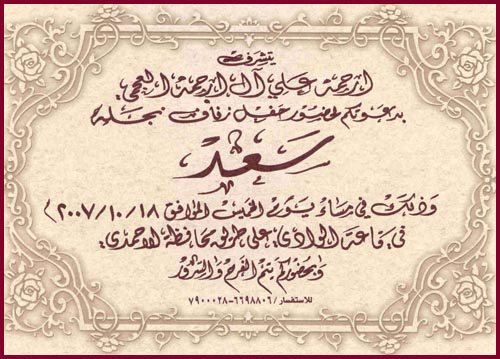 يتشرف
ارحمه علي آل ارحمه العجمي
بدعوتكم لحضور حفل زفاف نجله
سَعَد
وذلك في مساء يوم الخميس الموافق ٢٠٠٧/١٠/١٨م
في قاعة الوادي على طريق محافظة الاحمدي
وبحضوركم يتم الفرح والسرور
للاستفسار / ٦٦٩٨٨٠٦-٧٩٠٠٠٢٨